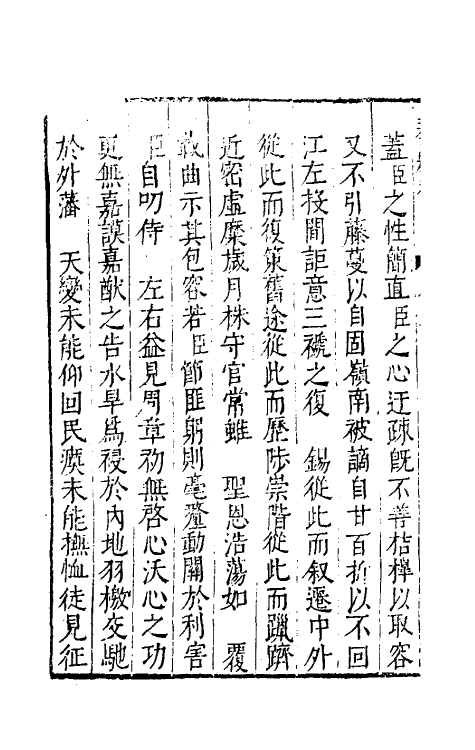 蓋臣之性簡直臣之心迂疎旣不善桔槹以取容
又不引藤蔓以自固嶺南被謫自甘百折以不回
江左投閒詎意三褫之復　錫從此而叙遷中外
從此而復策舊途從此而歷陟崇階從此而躐躋
近密虛糜歲月株守官常雖　聖恩浩蕩如　覆
載曲示其包容若臣節匪躬則毫釐動關於利害
臣自叨侍　左右益見周章初無啓心沃心之功
更無嘉謨嘉猷之告水旱爲祲於內地羽檄交馳
於外藩　天變未能仰回民瘼未能撫恤徒見征